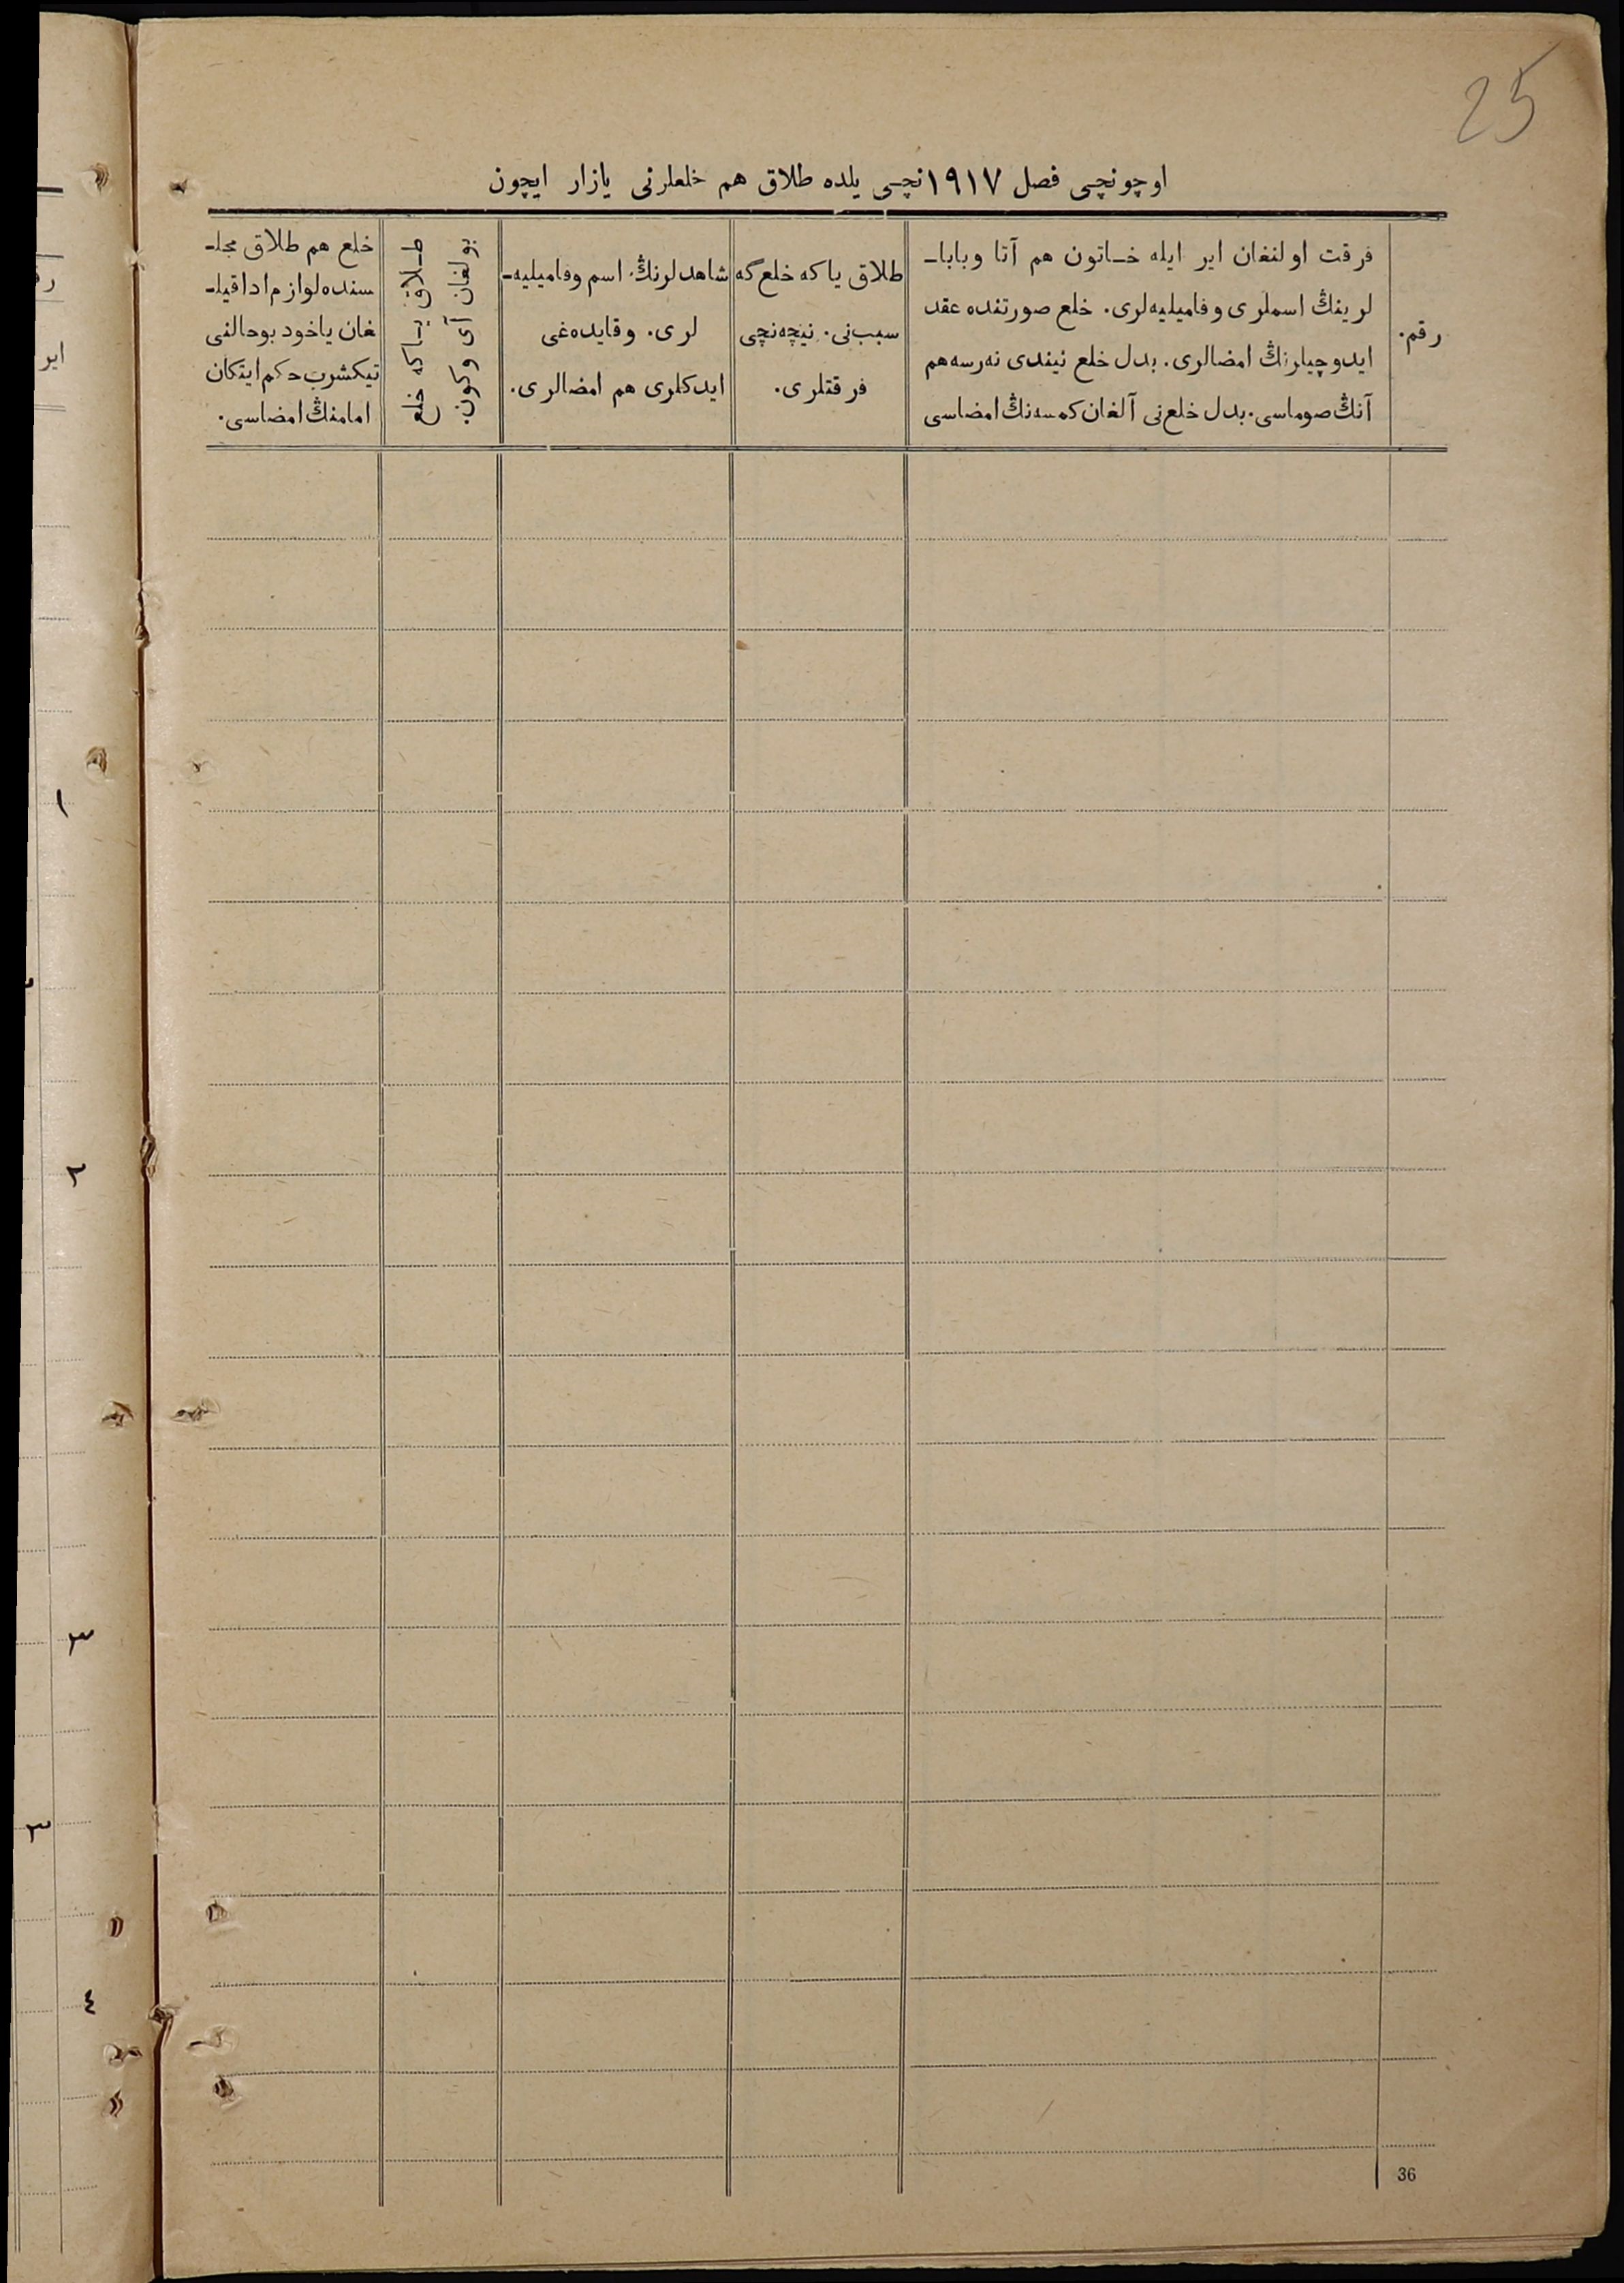 25
اوچونچی فصل ١٩١٧نچی یلده طلاق هم خلعلرنی یازار ایچون
رقم.
فرقت اولنغان ایر ایله خـاتون هم آتا وبابا-
لرینڭ اسملری وفامیلیه‌لری. خلع صورتنده عقد
ایدوچیلرنڭ امضالری. بدل خلع نیندی نه‌رسه هم
آنڭ صوماسی. بدل خلع‌نی آلغان کمسه‌نڭ امضاسی
طلاق یاکه خلع‌گه
سبب‌نی. نیچه‌نچی
فرقتلری.
شاهدلرنڭ اسم وفامیلیه-
لری. وقایده‌غی
ایدکلری هم امضالری.
طـلاق یـاکه خلع
بولغان آی وکون.
خلع هم طلاق مجلـ
سنده لوازم ادا قیلـ
غان یاخود بوحالنی
تیکشرب حکم ایتکان
امامنڭ امضاسی.
36
ایر
١
٢
٣
٣
٤